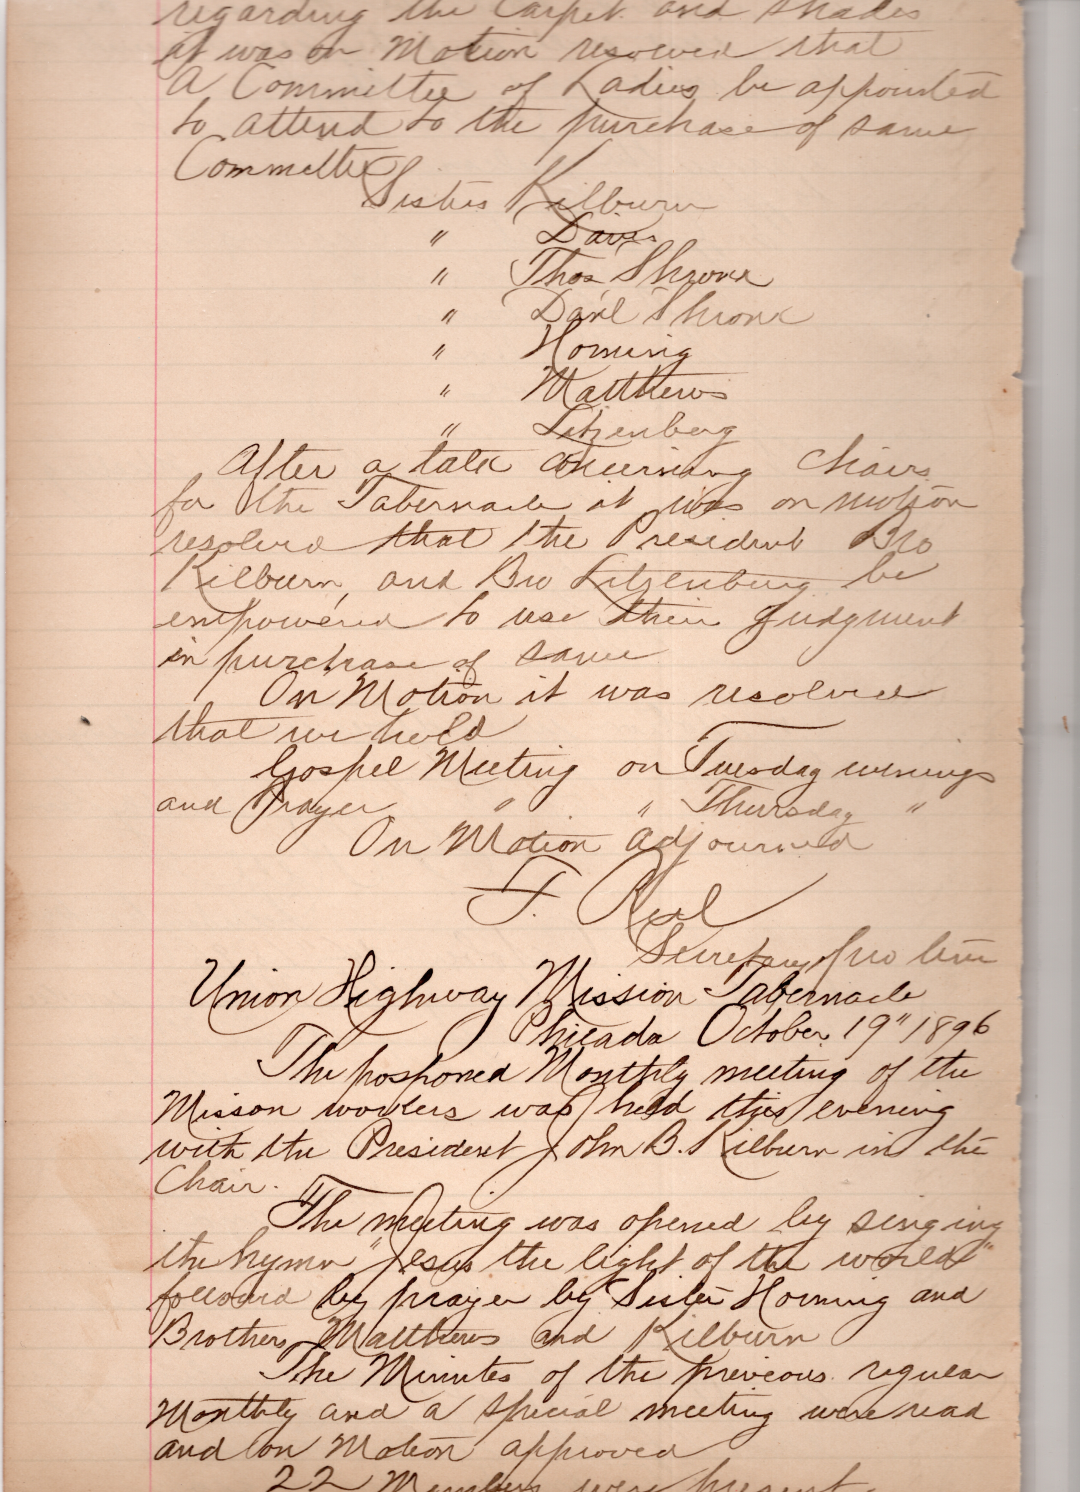 regarding the Carpet and Shades
it was on Motion resolved that
a Committee of Ladies be appointed
to attend to the purchase of same
Committee
Sister Kilburn
" Davis
" Thos Shronk
" Danl Shronk
" Horning
" Matthews
" Litzenberg
After a talk concerning Chairs
for the Tabernacle it was on motion
resolved that the President Bro
Kilburn, and Bro Litzenberg be
empowered to use their Judgment
in purchase of same
On Motion it was resolved
that we hold
Gospel Meeting on Tuesday evenings
and Prayer " " Thursday "
On Motion adjourned
T.
Secretary pro tem
Union Highway Mission Tabernacle
Philada October 19" 1896
The posponed Monthly meeting of the
Misson workers was held this evening
with the President John B. Kilburn in the
Chair.
The meeting was opened by singing
the hymn "Jesus the light of the world"
followed by prayer by Sister Horning and
Brothers Matthews and Kilburn
The Minutes of the previous regular
Monthly and a special meeting were read
and on Motion approved
22 Members were present